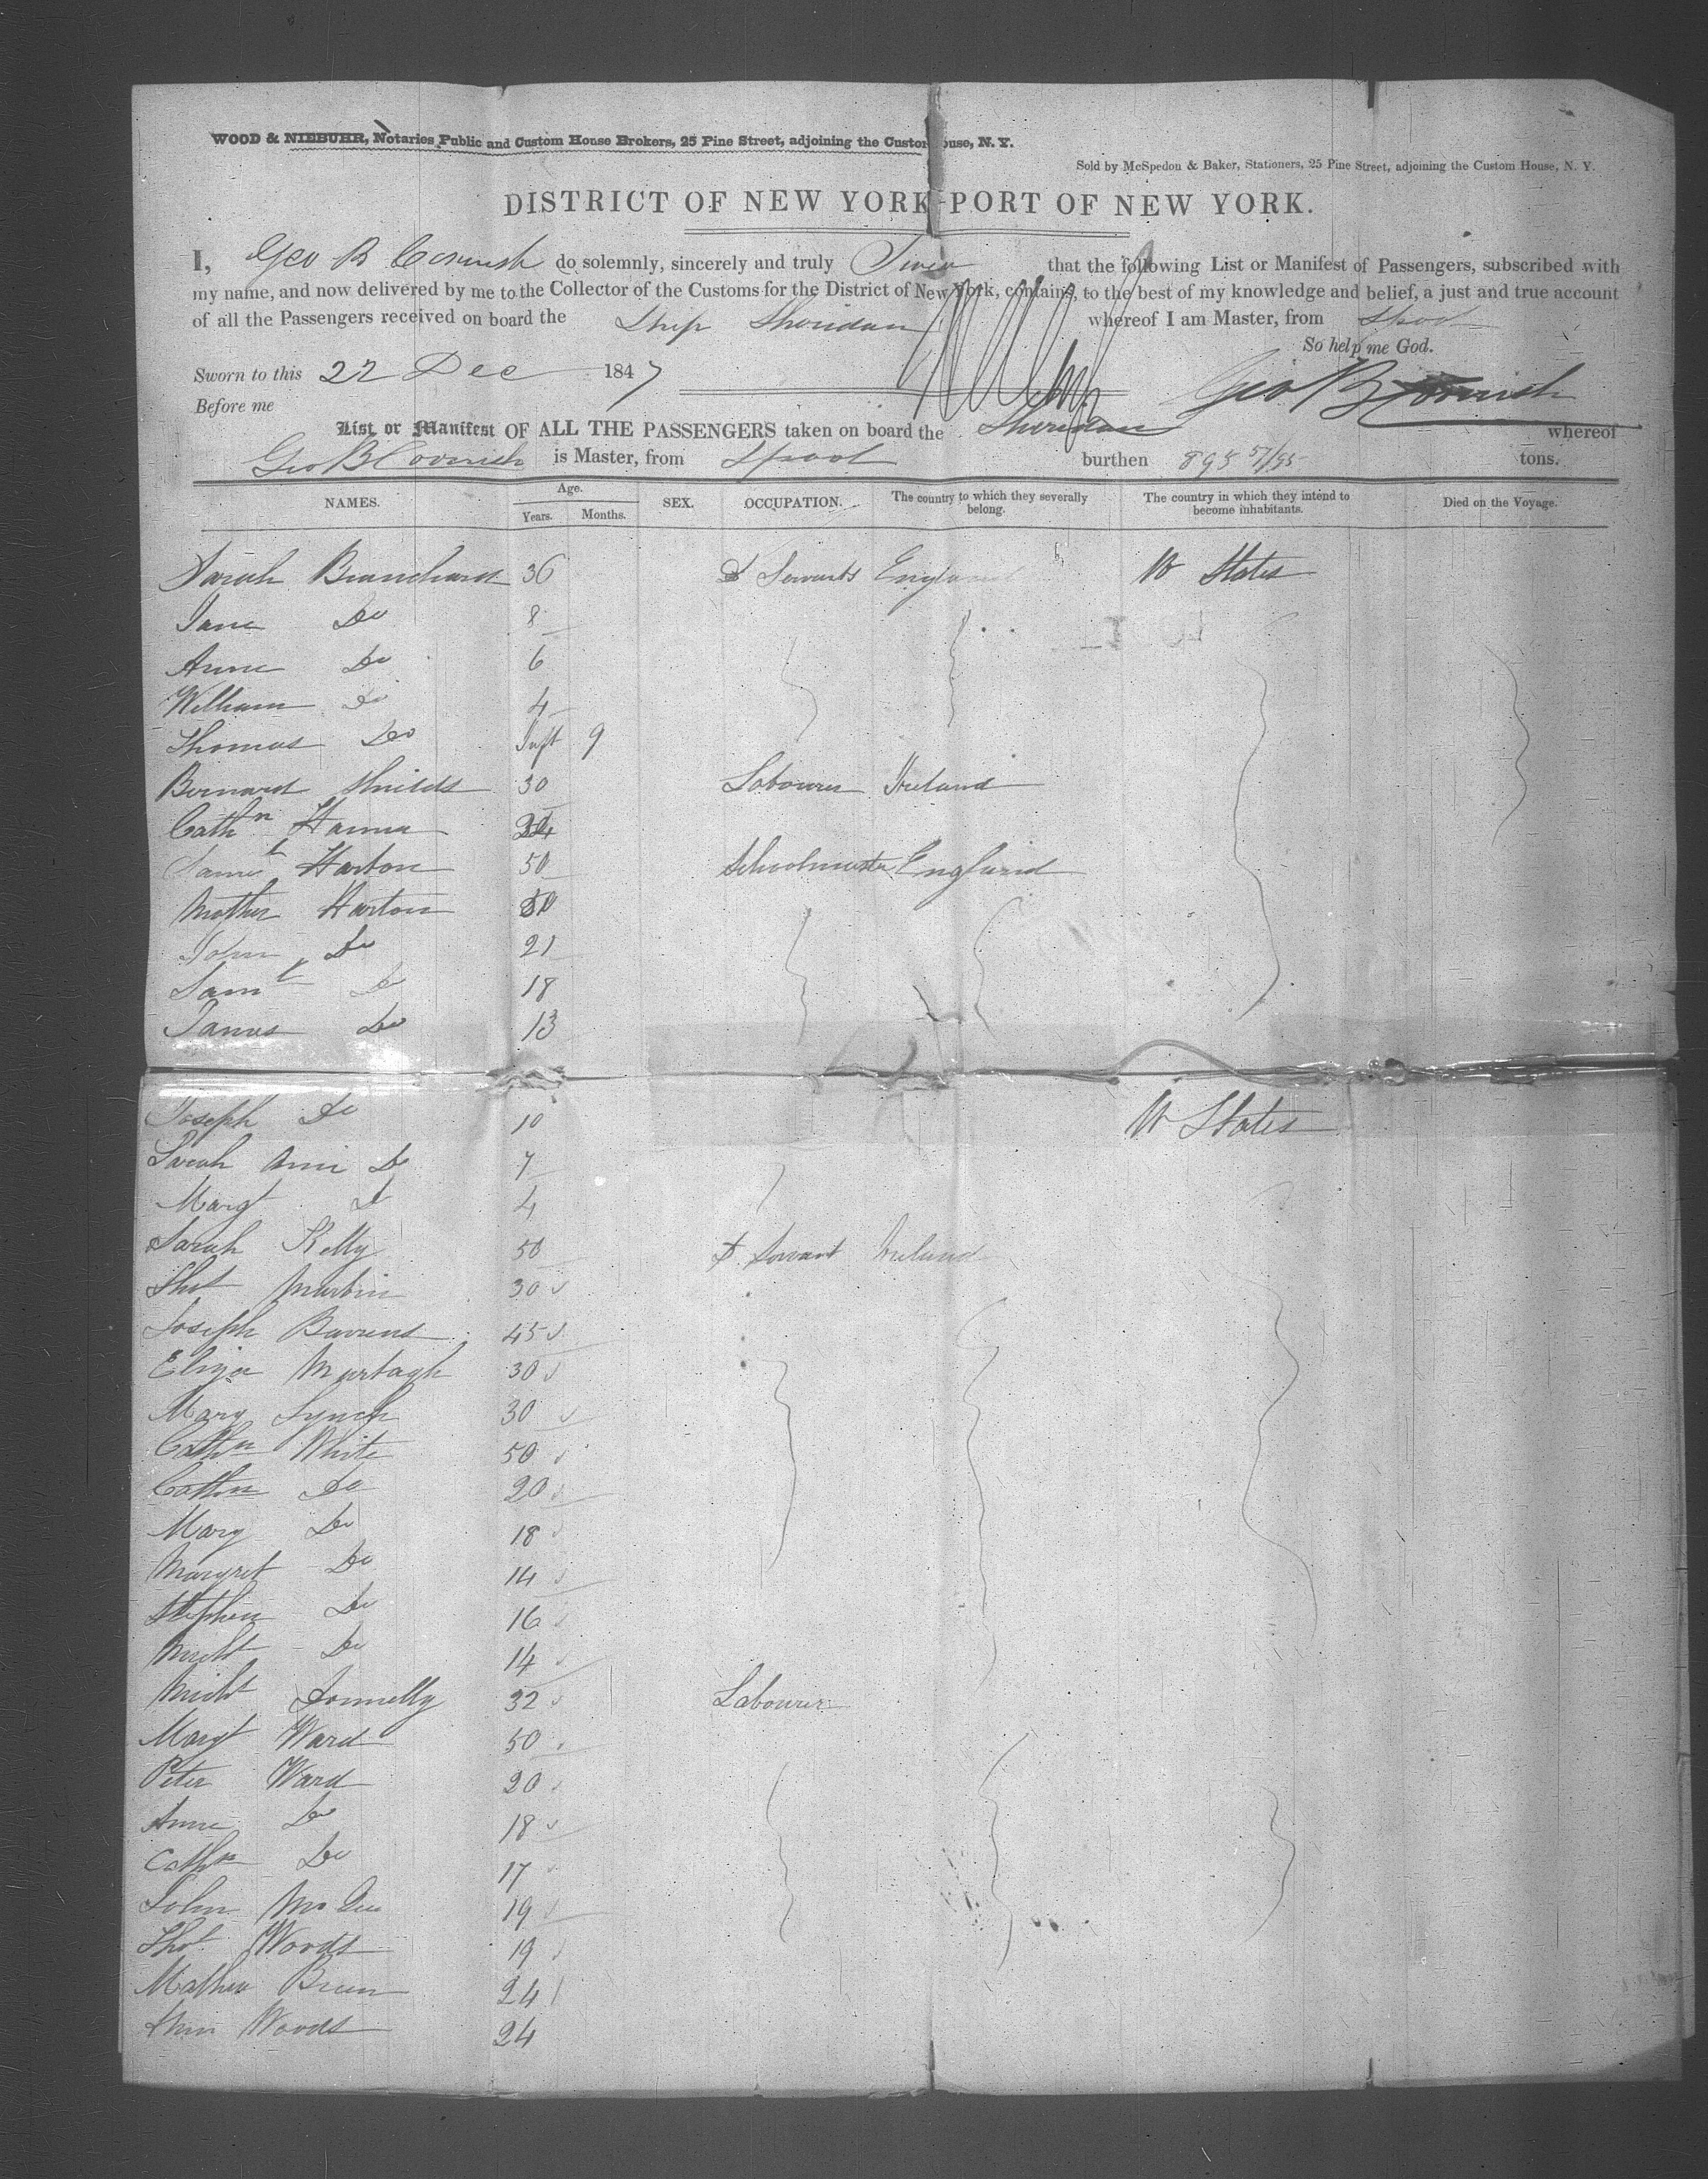 WOOD & NIEBUHR, Notaries Public and Custom House Brokers, 25 Pine Street, adjoining the Custom House, N. Y.
Sold by McSpedon & Baker, Stationers, 25 Pine Street, adjoining the Custom House, N. Y.
DISTRICT OF NEW YORK-PORT OF NEW YORK.
I, Geo B Cornish do solemnly, sincerely and truly Swear that the following List or Manifest of Passengers, subscribed with
my name, and now delivered by me to the Collector of the Customs for the District of New York, contains, to the best of my knowledge and belief, a just and true account
of all the Passengers received on board the Ship Sheridan whereof I am Master, from Lpool
So help me God.
Sworn to this 22 Dec 1847
Geo B Cornish
Before me
List or Manifest OF ALL THE PASSENGERS taken on board the Sheridan whereof
Geo B Cornish is Master, from Lpool burthen 895 57/95 tons.
NAMES. Age. SEX. OCCUPATION. The country to which they severally belong. The country in which they intend to become inhabitants. Died on the Voyage.
Years. Months.
Sarah 36 D Servants England U States
Jane Do 8
Anne Do 6
William Do 4
Thomas Do Inft 9
Bernard Shields 30 Labourer Ireland
Cathn Hanna
Saml Harton 50 Schoolmaster England
Mother Harton
John Do 21
Saml Do 18
James Do 13
Joseph Do 10 U States
Sarah Ann Do 7
Margt D 4
Sarah Kelly 50 D Servant Ireland
Thos Martin 30
Joseph Barrens 45
Eliza Murtagh 30
Mary Lynch 30
Cathn White 50
Cathn Do 20
Mary Do 18
Margret Do 14
Stephen Do 16
Michl Do 14
Michl Donnelly 32 Labourer
Margt Ward 50
Peter Ward 20
Anne Do 18
Cathn Do 17
John Mc Gee 19
Thos Woods 19
Mathew Breen 24
Woods 24